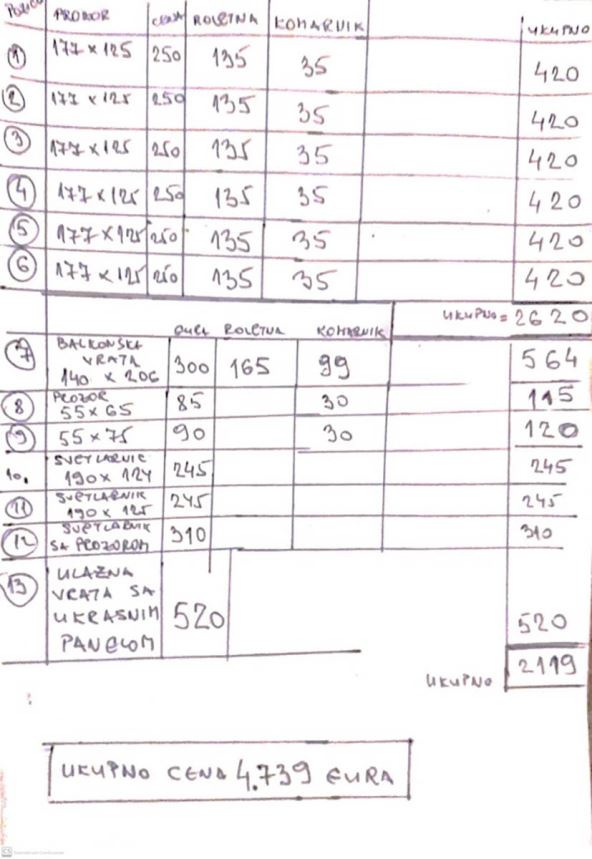 PROZOR CENA ROLETNA KOMARNIK UKUPNO
1 177 x 125 250 135 35 420
2 177 x 125 250 135 35 420
3 177 x 125 250 135 35 420
4 177 x 125 250 135 35 420
5 177 x 125 250 135 35 420
6 177 x 125 250 135 35 420
UKUPNO = 2620
ROLETNA KOMARNIK
7 BALKONSKA
VRATA 300 165 99 564
140 x 206
8 PROZOR 85 30 115
55 x 65
9 55 x 75 90 30 120
10. SVETLARNIK 245 245
190 x 124
11 SVETLARNIK 245 245
190 x 125
12 SVETLARNIK 310 310
SA PROZOROM
13 ULAZNA
VRATA SA
UKRASNIM 520 520
PANELOM
UKUPNO 2119
UKUPNO CENA 4.739 EURA
CS